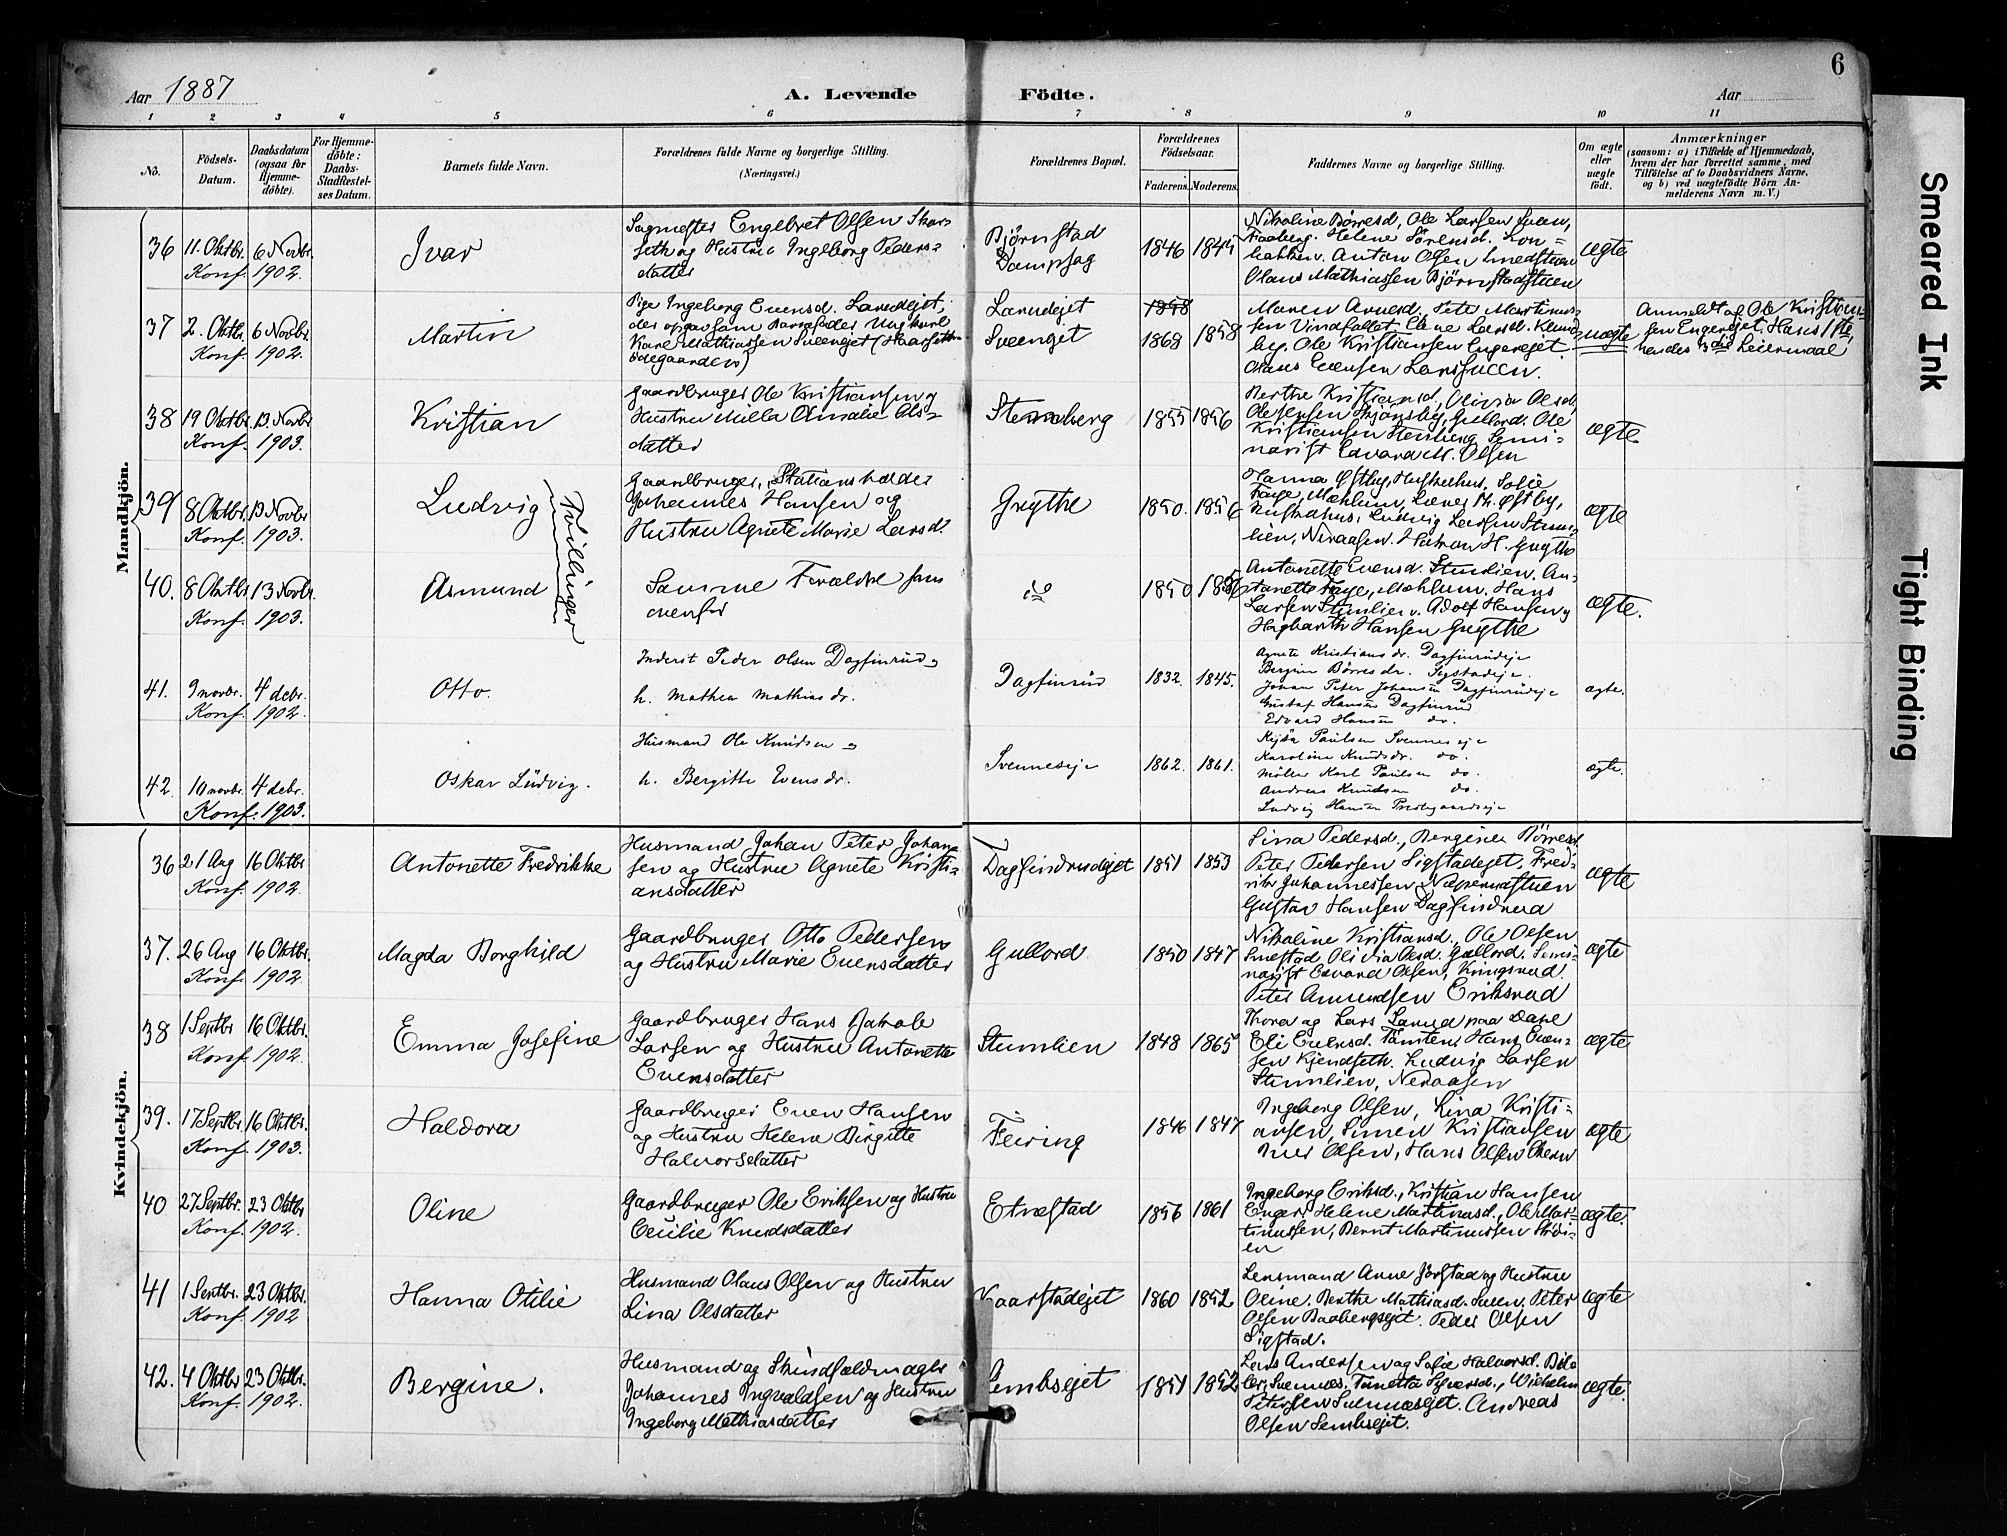 6
Aar 1887 A. Levende Födte. Aar
1 2 3 4 5 6 7 8 9 10 11
No.
Födsels-Datum.
Daabsdatum (ogsaa for Hjemmedöbte).
For Hjemmedöbte: Daabs-Stadfæstelses Datum.
Barnets fulde Navn.
Forældrenes fulde Navne og borgerlige Stilling.
(Næringsvei.)
Forældrenes Bopæl.
Forældrenes Födselsaar.
Faderens. Moderens.
Faddernes Navne og borgerlige Stilling.
Om ægte eller uægte födt.
Anmærkninger
(saasom: a) i Tilfælde af Hjemmedaab,
hvem der har forrettet samme, med
Tilföielse af to Daabsvidners Navne,
og b) ved uægtefödte Börn An-
melderens Navn m. V.)
Mandkjön.
36 11 Oktbr. 6 Novbr. Ivar
Konf. 1902.
Sagmester Engebret Olsen
seth og Hustru Ingeborg Peders-
datter
Bjørnstad
Dampsag
1846 1845
Nikoline Børresd., Ole Larsen Sveen,
Faaberg. Helene Sörensd.
Anton Olsen
Olaus Mathiassen Bjørnstadstuen
ægte
37 2. Oktbr. 6 Novbr. Martin
Konf. 1902.
Pige Ingeborg Evensd.
der opgav som Barnefader Ungkarl
Karl Mathiassen
Svenejet
1858
1868 1858
Maren Arnesd., Peter Martinus-
sen Vindfallet. Larsd.
Ole Kristiansen Engerejet.
Evensen
uægte
Anmeldt af Ole Kristian-
sen Engerejet. Hans 1ste,
hendes 3die Leiermaal
38 19 Oktbr. 13 Novbr. Kristian
Konf. 1903.
Gaardbruger Ole Kristiansen og
Hustru Milla Amalie Ols-
datter
Stensberg
1855 1856
Berthe Kristiansd., Olivia Olesd.
Ole Jensen Gullord. Ole
Kristiansen Stensberg. Semi-
narist Edvard M. Olsen
ægte.
39 8 Oktbr. 13 Novbr. Ludvig
Konf. 1903.
Tvillinger
Gaardbruger, Stationsholder
Johannes Hansen og
Hustru Agnete Marie Larsd.
Grythe
1850. 1856
Hanna Østby, Sofie
Faye, Mæhlum, Østby,
Ludvig Larsen Stum-
lien, Neraasen. Haakon H. Grythe
ægte
40. 8 Oktbr. 13 Novbr. Asmund
Konf. 1903.
Samme Forældre som
ovenfor
do
1850 1856
Antonette Evensd. Stumlien. An-
tonette Faye, Mæhlum. Hans
Larsen Stumlien. Adolf Hansen og
Hagbarth Hansen Grythe
ægte.
41. 9 novbr. 4 debr. Otto.
Konf. 1902.
Inderst Peder Olsen Dagfinrud og
h. Mathea Mathiasdr.
Dagfinrud
1832. 1845.
Agnete Kristiansdr. Dagfinrudeje
Bergine Börresdr. Sigstadeje.
Johan Peter Johansen Dagfinrudeje
Gustaf Hansen Dagfinrud
Edvard Hansen do.
ægte.
42. 10 novbr. 4 debr. Oskar Ludvig.
Konf. 1903.
Husmand Ole Knudsen og
h. Bergitte Evensdr.
Svenneseje
1862. 1861.
Kejsa Paulsen Svenneseje
Karoline Knudsdr. do.
Möller Karl Paulsen do.
Andreas Knudsen do.
Ludvig Hansen Prestegaardseje
ægte.
Kvindekjön.
36 21 Aug 16 Oktbr. Antonette Fredrikke
Konf. 1902.
Husmand Johan Peter Johan-
sen og Hustru Agnete Kristi-
ansdatter
Dagfindrudejet
1851 1853
Lina Pedersd., Bergine Börresd.
Peter Pedersen Sigstadejet. Fred-
rik Johannessen
Gustav Hansen Dagfindrud
ægte
37. 26 Aug 16 Oktbr. Magda Borghild
Konf. 1902.
Gaardbruger Otto Pedersen
og Hustru Marie Evensdatter
Gullord
1850 1847
Nikoline Kristiansd., Ole Olsen
Smestad Olivia Olsd. Gullord. Semi-
narist Edvard Olsen, Kongsrud.
Peter Amundsen Eriksrud
ægte
38 1 Septbr 16 Oktbr. Emma Josefine
Konf. 1902.
Gaardbruger Hans Jakob
Larsen og Hustru Antonette
Evensdatter
Stumlien
1848 1865
Thora og Lars
Eli Evensd. Hans Even-
sen Kjendseth. Ludvig Larsen
Stumlien, Neraasen
ægte
39. 17 Septbr. 16 Oktbr. Haldora
Konf. 1903.
Gaardbruger Even Hansen
og Hustru Helene Birgitte
Halvorsdatter
Feiring
1846 1847
Ingeborg Olsen, Lina Kristi-
ansen, Simen Kristiansen
Iver Olsen, Hans Olsen
ægte
40 27 Septbr. 23 Oktbr. Oline
Konf. 1902.
Gaardbruger Ole Eriksen og Hustru
Cecilie Knudsdatter
Etnestad
1856 1861
Ingeborg Eriksd., Kristian Hansen
Enger, Helene Martinusd., Ole Mar-
tinussen, Bernt Martinussen
ægte.
41 1 Septbr. 23 Oktbr. Hanna Otilie
Konf. 1902
Husmand Olaus Olsen og Hustru
Lina Olsdatter
Kaarstadejet
1860 1852
Lensmand Arne Jørstad og Hustru
Oline. Berthe Mathiasd. Sveen. Peter
Olsen Baabergsejet. Peder Olsen
Sigstad.
ægte
42. 4 Oktbr. 23 Oktbr. Bergine.
Konf. 1902.
Husmand og Skindfældmager
Johannes Ingvaldsen og Hustru
Ingeborg Mathiasdatter
Sembsejet
1851 1852
Lars Andersen og Sofie Halvorsd.
Svennes. Tonetta Syversd., Wilhelm
Petersen Svennesejet. Andreas
Olsen Sembsejet.
ægte.
Smeared Ink
Tight Binding